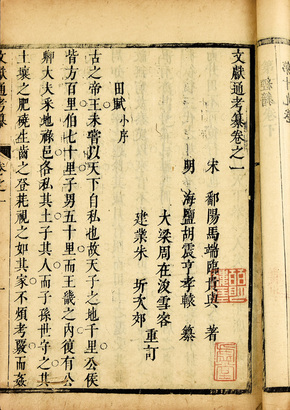 文獻通考纂卷之一
宋 鄱陽馬端臨貴與 著
明 海鹽胡震亨孝轅 纂
大梁周在浚雪客
建業朱 圻次郊 重訂
田賦小序
古之帝王未嘗以天下自私也故天子之地千里公侯
皆方百里伯七十里子男五十里而王畿之內復有公
卿大夫采地祿邑各私其土子其人而子孫世守之其
土壤之肥磽生齒之登耗視之如其家不煩考覈而姦
文獻通考纂 卷之一